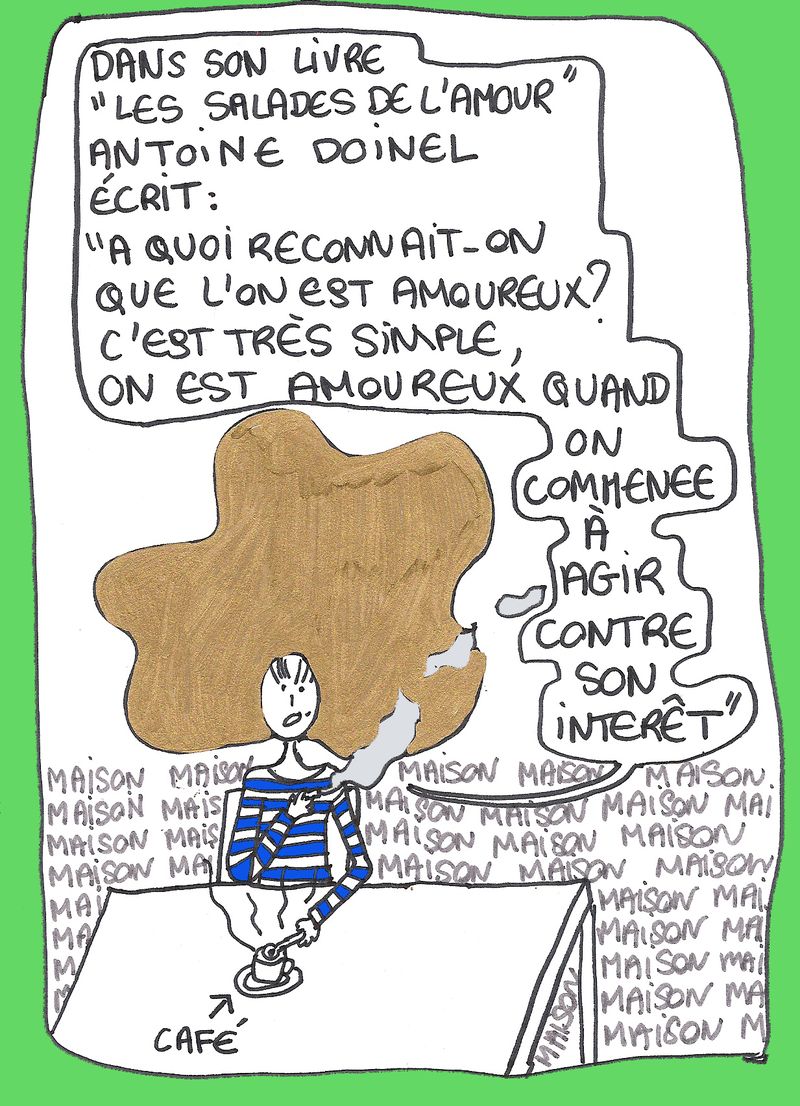 DANS SON LIVRE
"LES SALADES DE L'AMOUR"
ANTOINE DOINEL
ÉCRIT:
"A QUOI RECONNAIT-ON
QUE L'ON EST AMOUREUX?
C'EST TRÈS SIMPLE,
ON EST AMOUREUX QUAND
ON
COMMENEE
À
AGIR
CONTRE
SON
INTERÊT"
MAISON MAISON MAISON MAISON MAISON
MAISON MAIS MAISON MAISON MAISON MAI
MAISON MAIS MAISON MAISON MAISON
MAISON MA MAISON MAISON MAISON
MAI MAISON MAI
MA MAISON MA
M MAISON MAI
M MAISON MA
MAISON MAISON M
CAFÉ